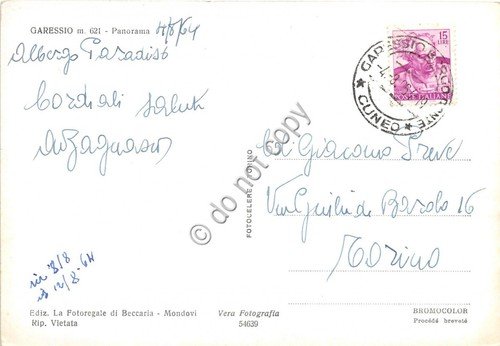 GARESSIO m. 621 - Panorama 4/8/64
Albergo Paradiso
Cordiali saluti
15
LIRE
POSTE ITALIANE
GARESSIO
CUNEO
© do not copy
Giacomo Preve
Via Giulia di Barolo 16
Torino
FOTOCELERE TORINO
ric 8/8
12/8-64
Ediz. La Fotoregale di Beccaria - Mondovì
Rip. Vietata
Vera Fotografia
54639
BROMOCOLOR
Procédé breveté